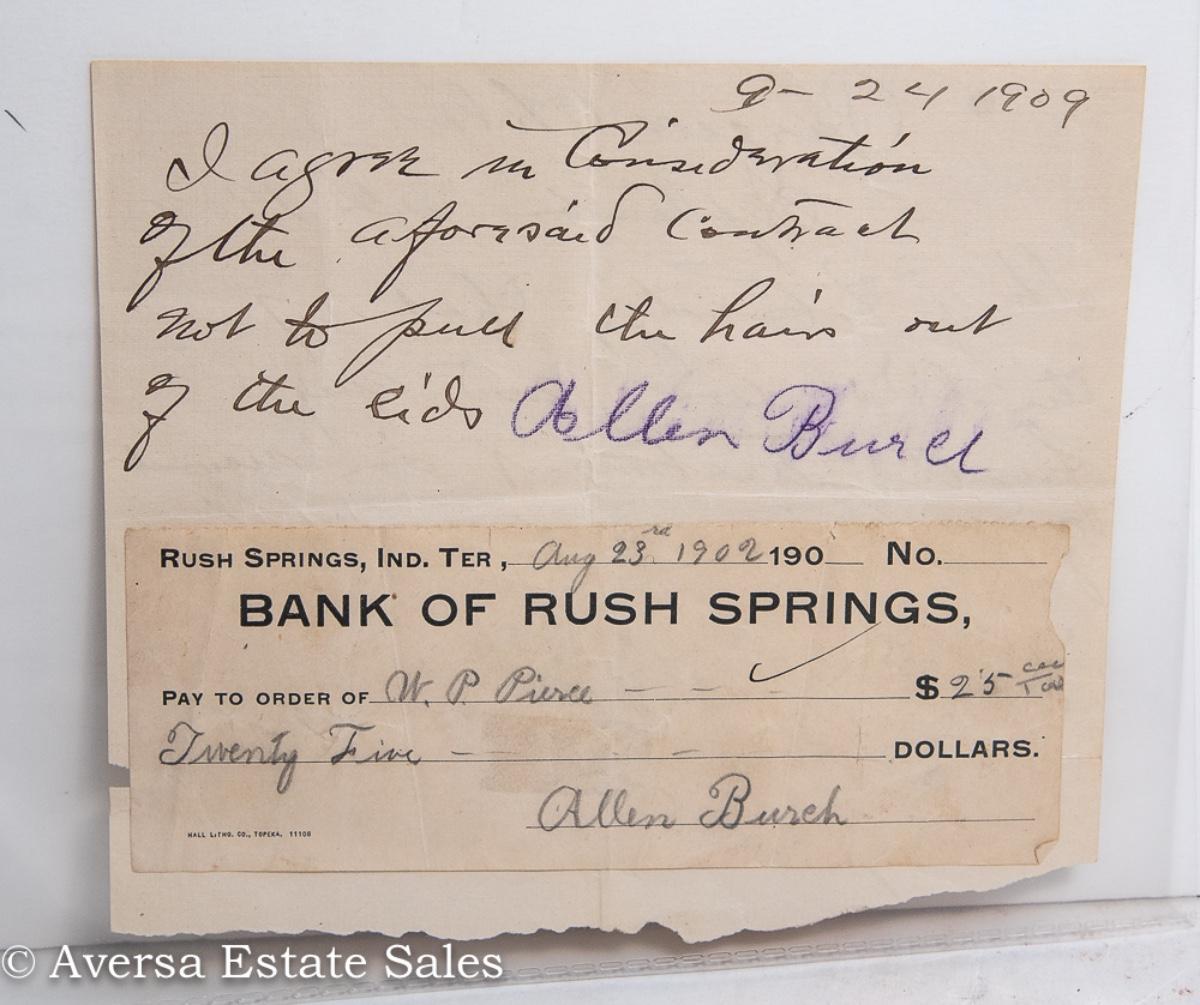 9- 24 1909
I agree in Consideration
of the aforesaid Contract
not to pull the hairs out
of the lids Allen Burch
RUSH SPRINGS, IND. TER, Aug 23rd 1902 190 No.
BANK OF RUSH SPRINGS,
PAY TO ORDER OF W. P. Pierce $ 25
Twenty Five DOLLARS.
Allen Burch
HALL LITHO. CO., TOPEKA, 11108
© Aversa Estate Sales